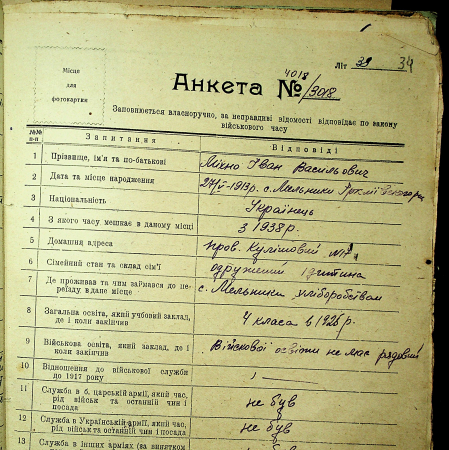 Місце
для
фотокартки
Літ 39 34
4018
Анкета № /3018
Заповнюється власноручно, за неправдиві відомості відповідає по закону
військового часу
№№ п-п
Запитання
Відповіді
1 Прізвище, ім'я та по-батькові Міхно Іван Васильович
2 Дата та місце народження 1913р. с. Мельники
3 Національність Українець
4 З якого часу мешкає в даному місці з 1938 р.
5 Домашня адреса пров. Кулішовий
6 Сімейний стан та склад сім'ї одружений 1 дитина
7 Де проживав та чим займався до переїзду в дане місце с. Мельники хліборобством
8 Загальна освіта, який учбовий заклад, де і коли закінчив 4 класа в 1926 р.
9 Військова освіта, який заклад, де і коли закінчив Військової освіти не має рядовий
10 Відношення до військової служби до 1917 року —
11 Служба в б. царській армії, який час, рід військ та останній чин і посада не був
12 Служба в Українській армії, який час, рід військ та останній чин і посада не був
13 Служба в інших арміях (за винятком